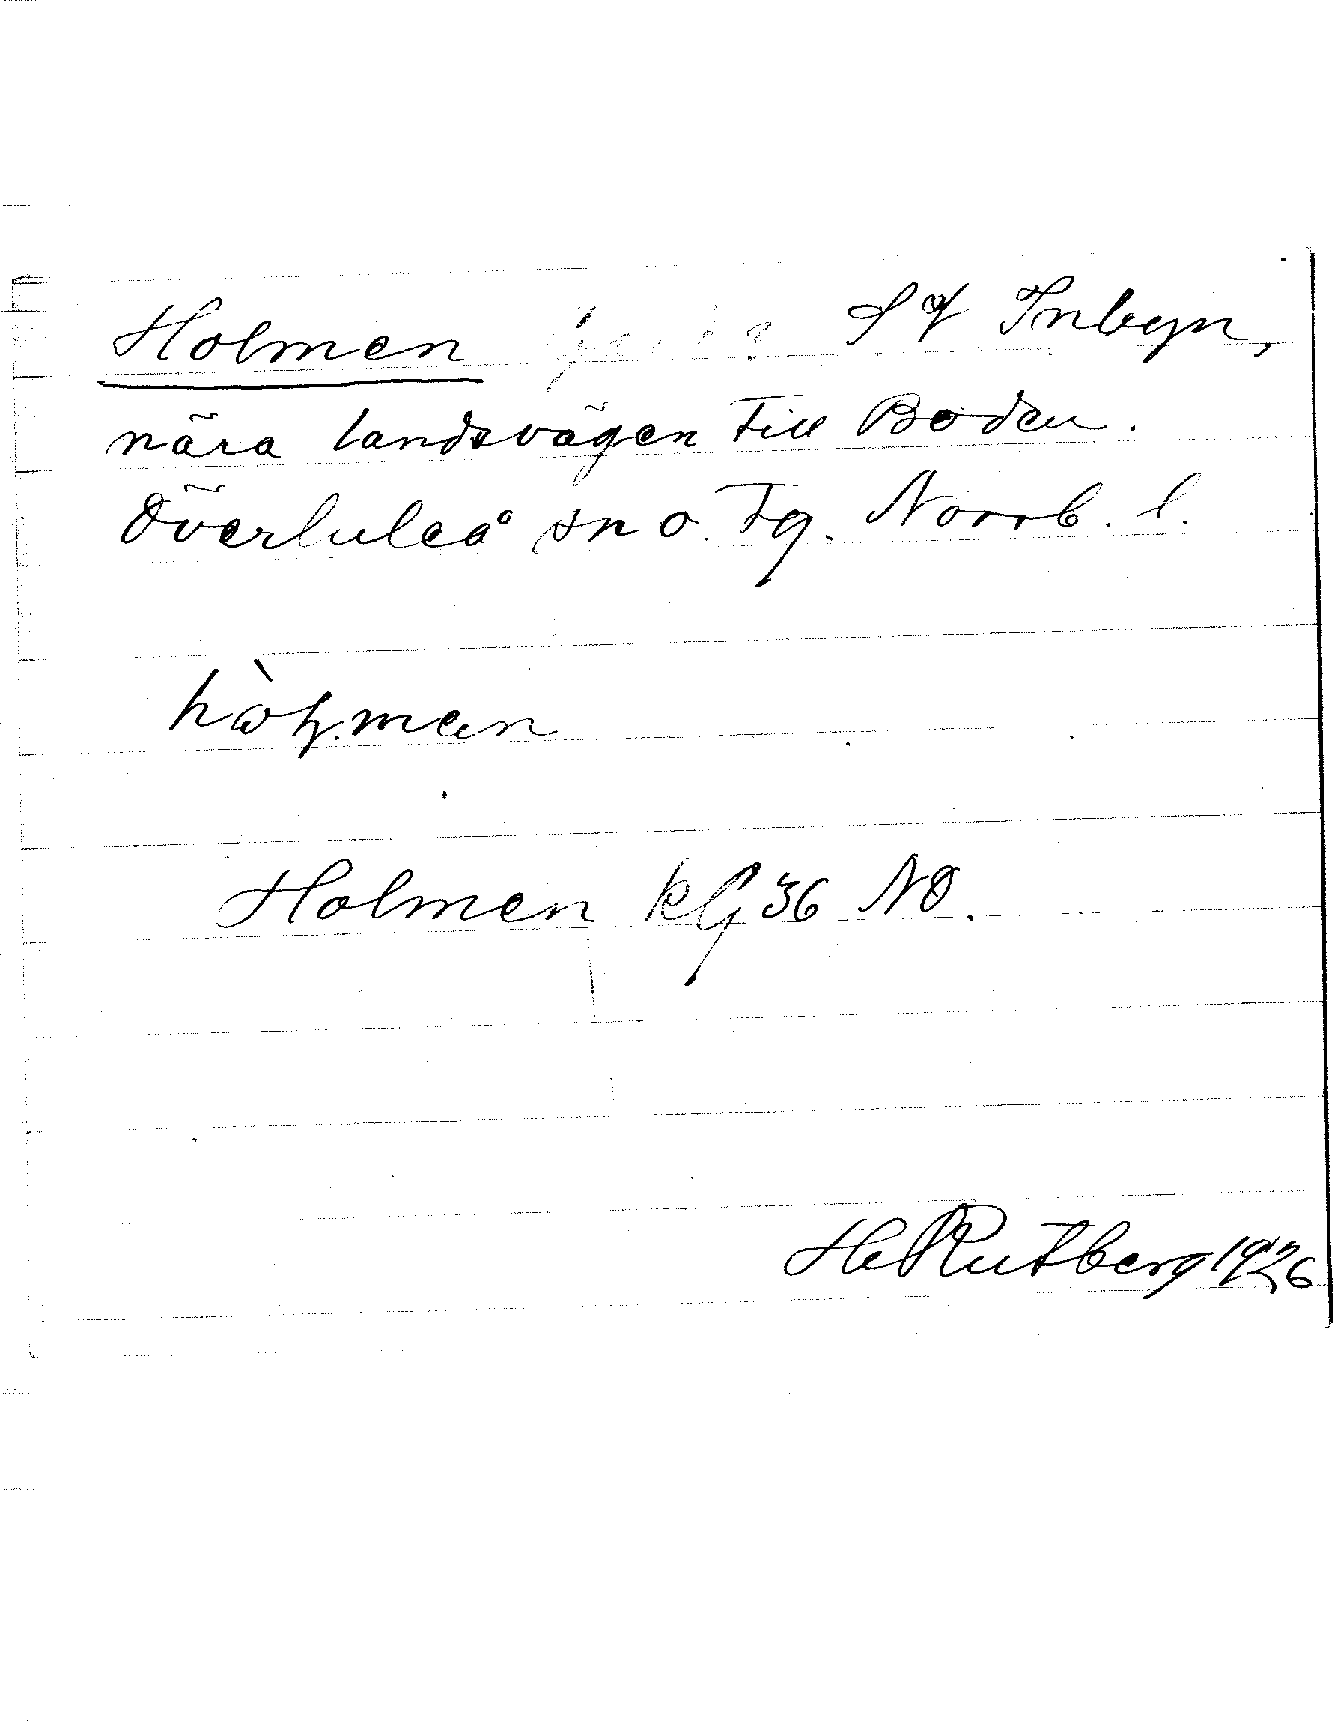 Holmen Sf Inbyn,
nära landsvägen till Boden.
Överluleå sn o. Tg. Norrb. l.
Holmen kG 36 NO.
H Rutberg 1926